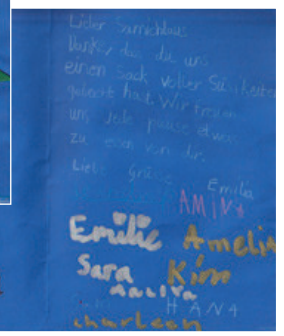 Lieber Samichlaus
Danke, das du uns
einen Sack voller Süsikeiten
gebracht hast. Wir freuen
uns jede pause etwas
zu essen von dir.
Liebe Grüsse
Emilia
AMINA
Emilie Amelie
Sara Kim
HANA
charleen